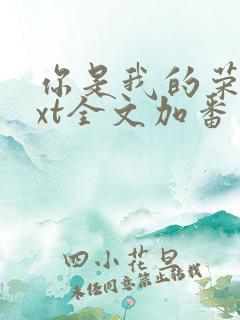 你是我的荣
xt全文加番
四小花旦
未经同意禁止转载